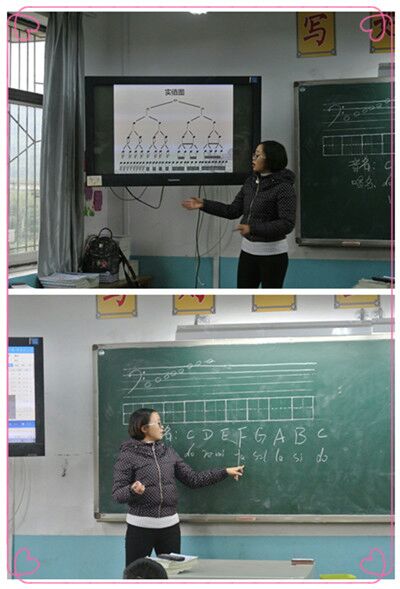 写
实值图
音名:
唱名:
: C D E F G A B C
do re mi fa sol la si do